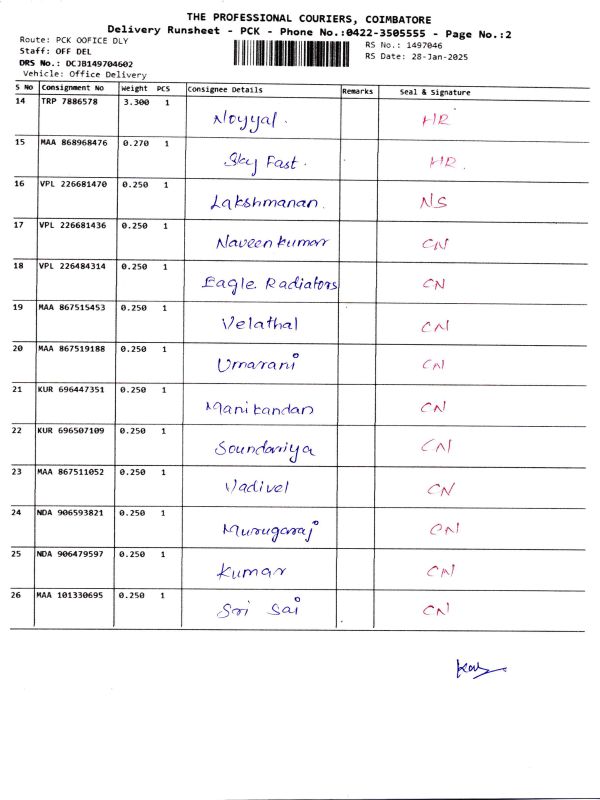 THE PROFESSIONAL COURIERS, COIMBATORE
Delivery Runsheet - PCK - Phone No.:0422-3505555 - Page No.:2
Route: PCK OOFICE DLY
RS No.: 1497046
Staff: OFF DEL
RS Date: 28-Jan-2025
DRS No.: DCJB149704602
Vehicle: Office Delivery
S No Consignment No Weight PCS Consignee Details Remarks Seal & Signature
14 TRP 7886578 3.300 1 Noyyal. HR
15 MAA 868968476 0.270 1 Sky Fast. HR.
16 VPL 226681470 0.250 1 Lakshmanan. NS
17 VPL 226681436 0.250 1 Naveen kumar CN
18 VPL 226484314 0.250 1 Eagle Radiators CN
19 MAA 867515453 0.250 1 Velathal CN
20 MAA 867519188 0.250 1 Umarani CN
21 KUR 696447351 0.250 1 Manikandan CN
22 KUR 696507109 0.250 1 Soundariya CN
23 MAA 867511052 0.250 1 Vadivel CN
24 NDA 906593821 0.250 1 Murugaraj CN
25 NDA 906479597 0.250 1 Kumar CN
26 MAA 101330695 0.250 1 Sri Sai CN